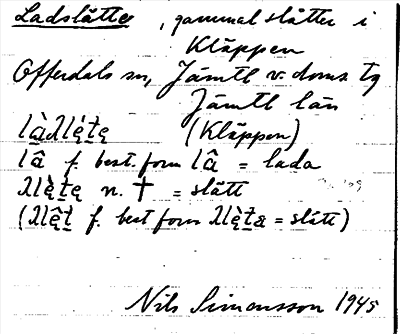 Ladslätte, gammal slåtter i
Kläppen
Offerdals sn, Jämtl v. doms. tg
Jämtl län
(Kläppen)
lâ f. best. form lâ = lada
n. † = slått
f. best form = slått)
Nils Simonsson 1945